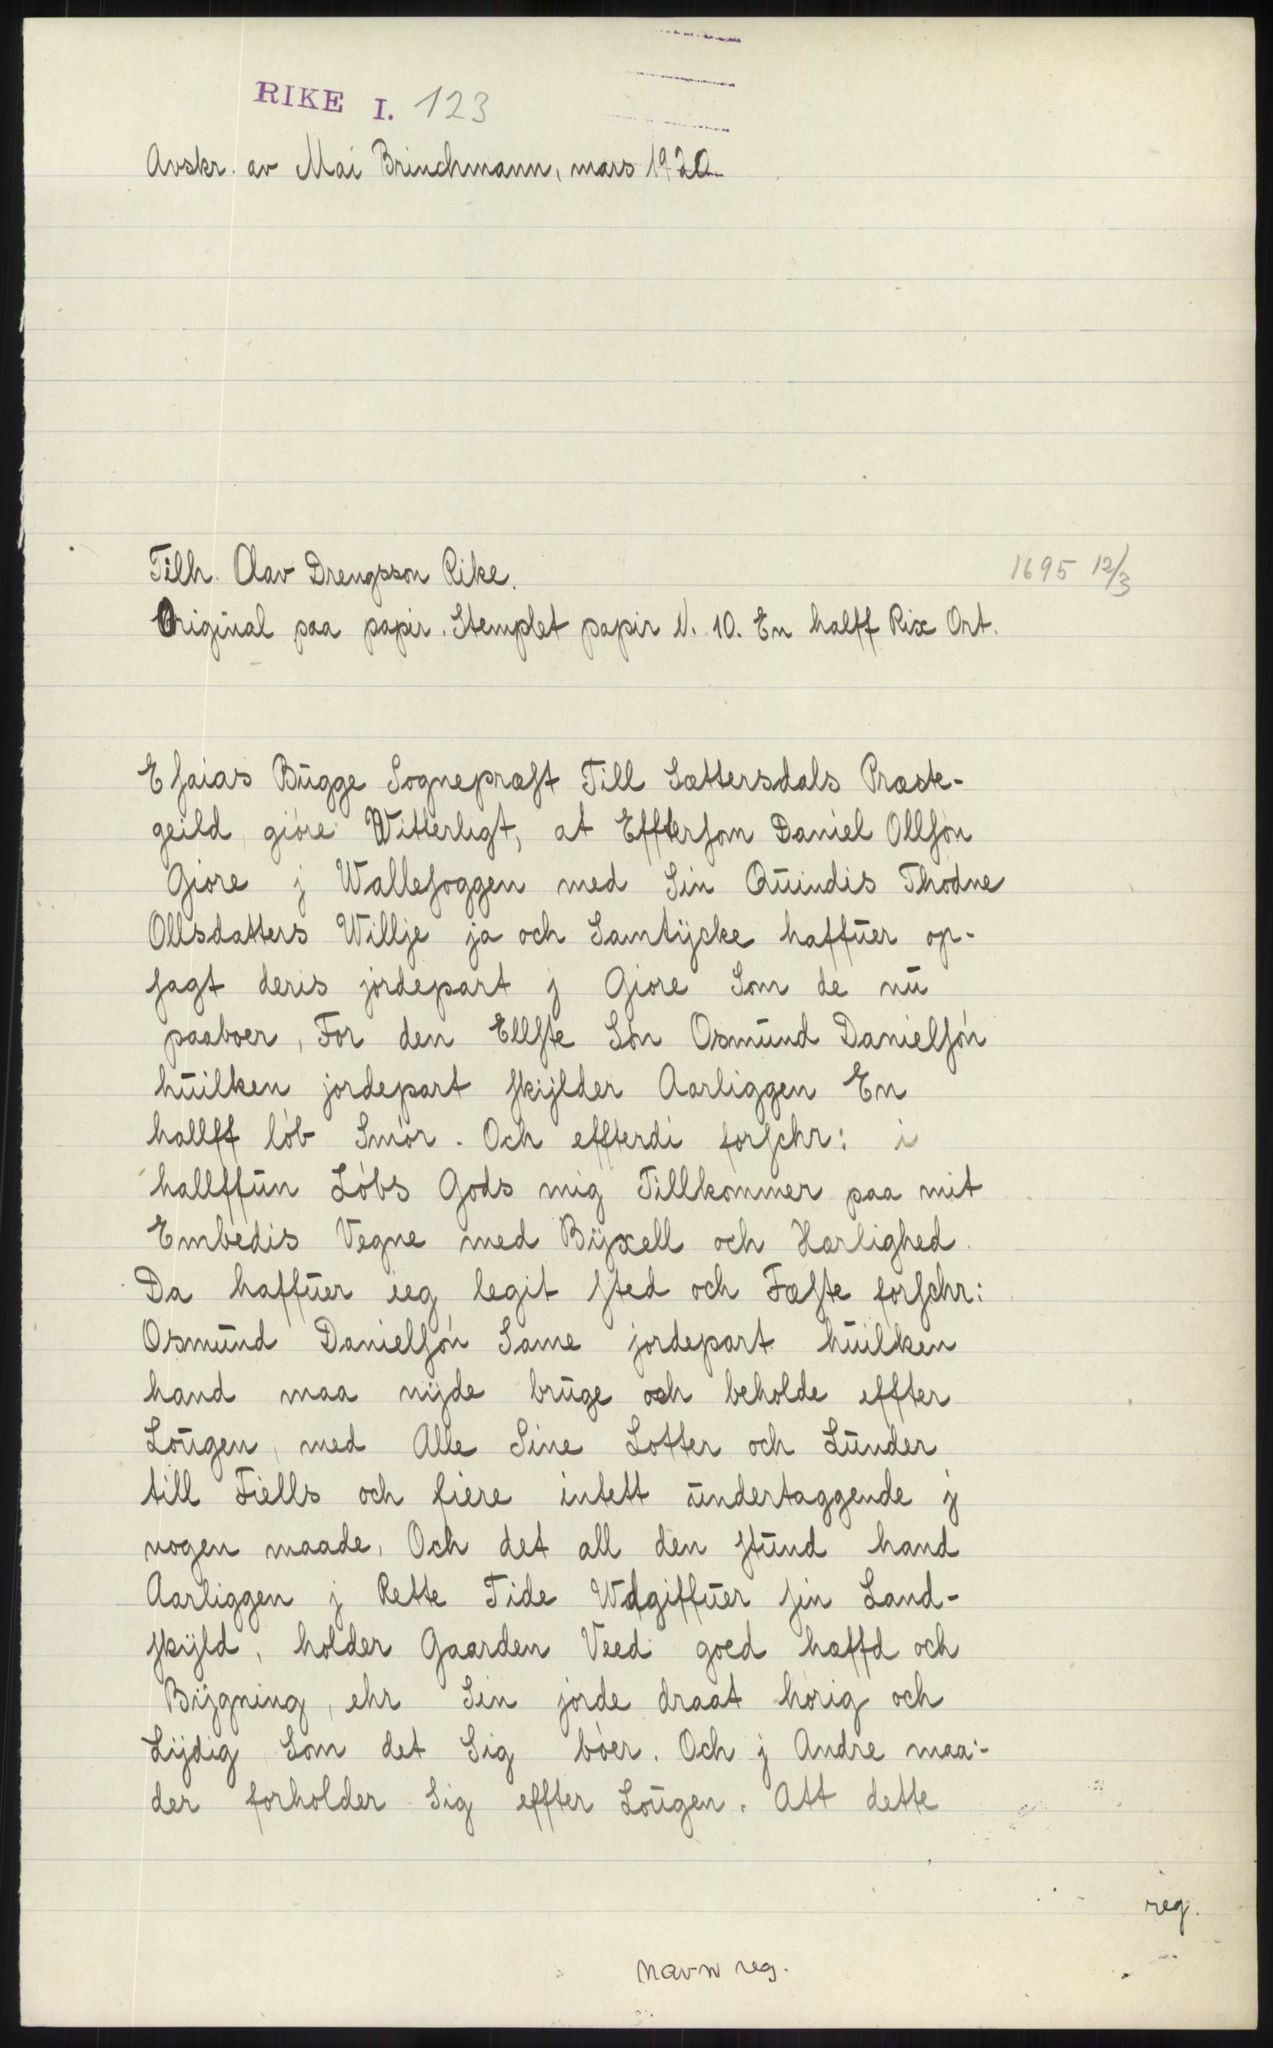 RIKE I. 123
Avskr. av Mai Brinchmann, mars 1920
Tilh. Olav Drengsson Rike.
1695 12/3
Original paa papir. Stemplet papir N. 10. En halff Rix Ort.
Esaias Bugge Sognepræst Till Sættersdals Præste-
geild gióre Witterligt, at Efftersom Daniel Ollsón
Gióre j Wallesoggen med Sin Quindis Thodne
Ollsdatters Willje ja och Samtÿcke haffuer op-
sagt deris jórdepart j Giore Som de nu
paaboer, For den Ellste Són Osmund Danielsón
huilken jordepart skÿlder Aarliggen En
hallff lób Smór. Och effterdi forschr: i
hallffun Lóbs Gods mig Tillkommer paa mit
Embedis Vegne med Bÿxell och Hærlighed.
Da haffuer ieg legit sted och Fæste forschr:
Osmund Danielsón Same jordepart huilken
hand maa nÿde bruge och beholde effter
Lougen, med Alle Sine Lotter och Lunder
till Fiells och fiere intett undertaggende j
nogen maade, Och det all den stund hand
Aarliggen j Rette Tide Wdgiffuer sin Land-
skÿld, holder Gaarden Veed goed hæffd och
Bÿgning, ehr Sin jorde draat hórig och
Lÿdig Som det Sig bóer. Och j Andre maa-
der forholder Sig effter Lougen. Att dette
reg.
navn reg.